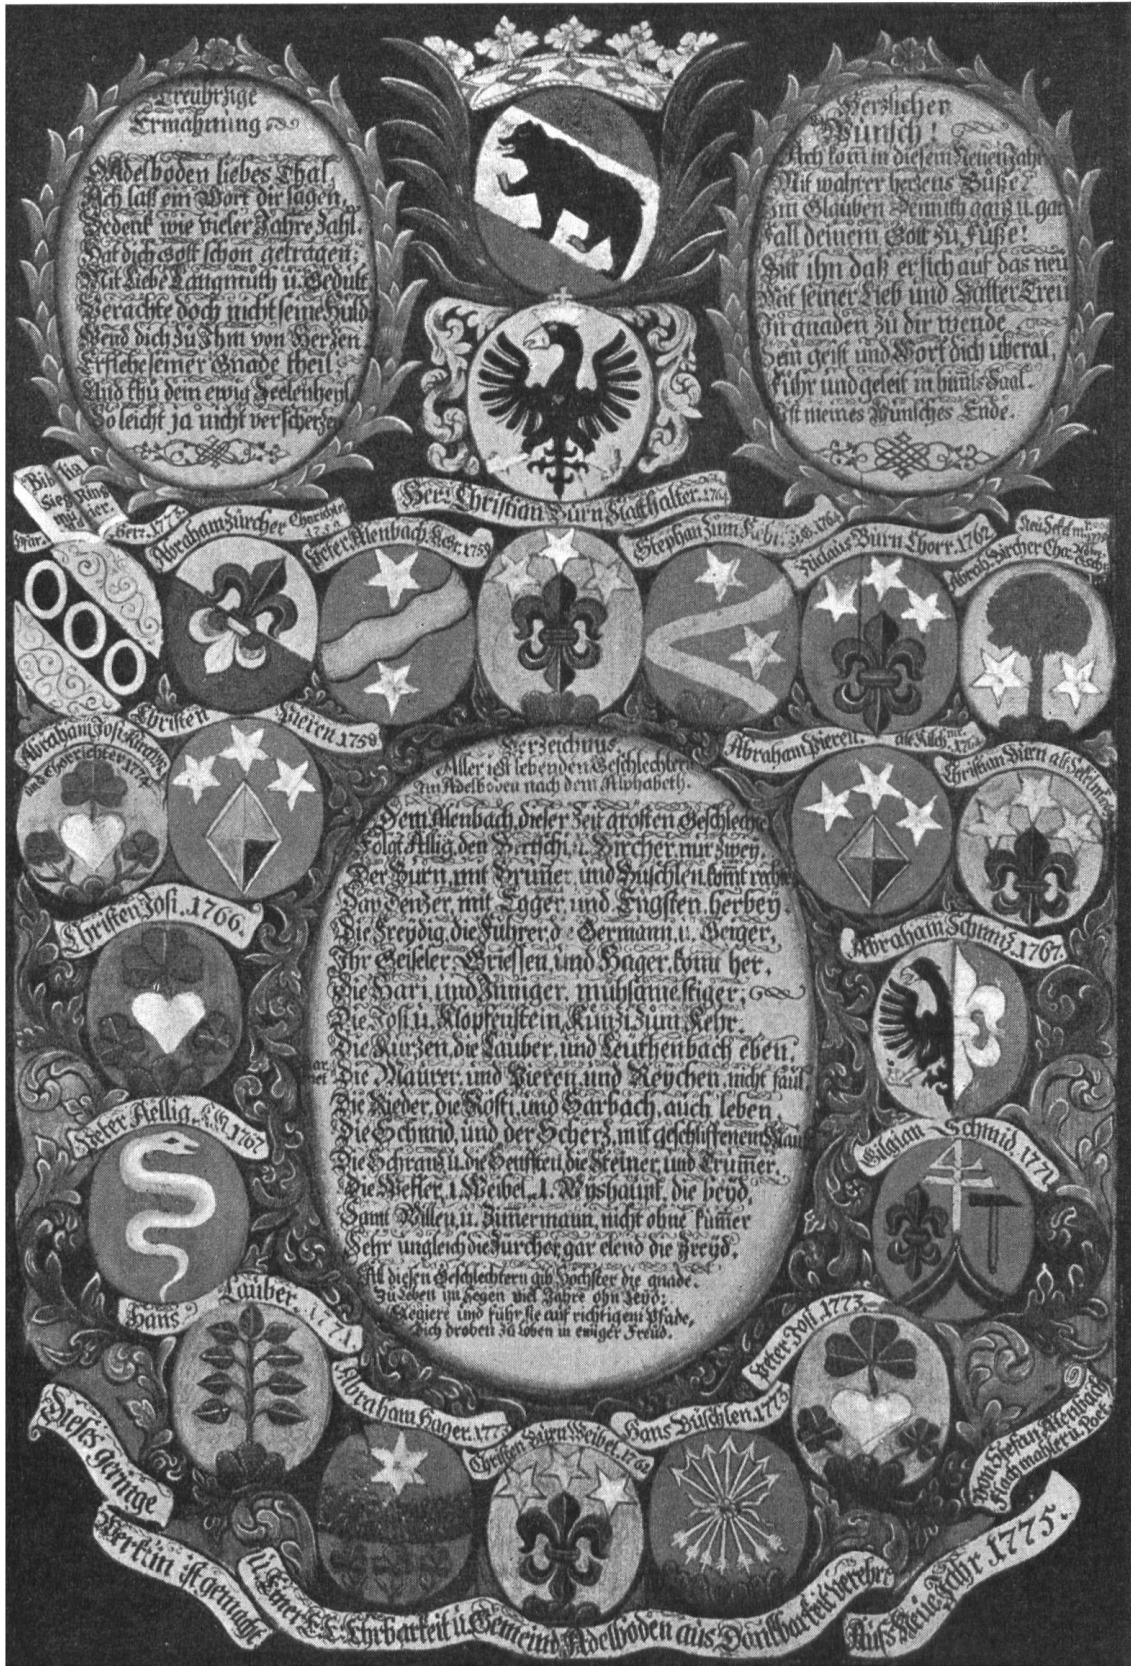 Treuhrzige
Ermahnung
Adelboden liebes Thal,
Ach laß ein Wort dir sagen,
Bedenk wie vieler Jahre Zahl,
Hat dich Gott schon getragen;
Mit Liebe Langmuth u. Gedult
Verachte doch nicht seine Huld
Wend dich zu Ihm von Herzen
Erflehe seiner Gnade theil
Und thu dem ewig Seelenheyl
So leicht ja nicht verscherzen
Herzlicher
Wunsch!
Ach kom in diesem Neuen Jahr
Mit wahrer herzens Buße?
Im Glauben Demuth ganz u. gar
Fall deinem Gott zu Fuße!
Bitt ihn daß er sich auf das neü
Mit seiner Lieb und Vatter Treu
In gnaden zu dir wende
Sein geist und Wort dich uberal,
Führ und geleit in him̄ls Saal.
Ist meines Wunsches Ende.
Herr Christian Bürn Statthalter. 1764
Biblia
Sieg Ring
Pfar. Herr. 1773
Abraham Zürcher Chorrichter
Peter Alenbach K.Gr. 1759
Stephan Zum Kehr. 1764
Niclaus Burn Chorr. 1762
Abrah. Bircher
Abraham Josi
und Chorrichter 1774
Christen Pieren 1758
Abraham Pieren. alt Kilch mr. 1764
Christian Bürn alt Sekelmstr
Christen Josi. 1766.
Abraham Schranz. 1767.
Peter Aellig. 1767
Gilgian Schmid. 1771
Hans Lauber. 1771
Peter Josi. 1773
Abraham Hager. 1773
Christen Bürn Weibel. 1762
Hans Büschlen. 1773
Verzeichnus
Aller ist lebenden Geschlechtern
Im Adelboden nach dem Alphabeth.
Dem Alenbach, dieser Zeit grösten Geschlecht
Folgt Allig, den Bertschi, u. Bircher, nur zwey,
Der Bürn, mit Brun̄er, und Büschlen, kom̄t recht
Dan Denzer, mit Egger, und Engsten, herbey.
Die Freydig, die Führer, de Germann, u. Geiger,
Ihr Geiseler Griessen, und Hager, kom̄t her,
Die Hari, und Inniger, muhsame stiger;
Die Josi u. Klopfenstein, Künzi Zum Kehr.
Die Kurzen, die Lauber, und Leuthenbach eben,
Die Maurer, und Pieren, und Reychen, nicht faul
Die Rieder, die Rösti, und Sarbach, auch leben,
Die Schmid, und der Scherz, mit geschliffenem Maul
Die Schranz u. die Senften die Steiner, und Trum̄er,
Die Wefler, 1. Weibel, 1. Wyshaupt, die beyd,
Samt Willen, u. Zim̄ermann, nicht ohne kum̄er
Sehr ungleich die Zürcher, gar elend die Freyd,
All diesen Geschlechtern gib Höchster die gnade,
Zu Leben im Segen viel Jahre ohn Leyd;
Regiere und führ sie auf richtigem Pfade,
Dich droben zu loben in ewiger Freud.
Dieses geringe
Werklin ist gemacht.
u. Einer E.E. Ehrbarkeit u. Gemeind Adelboden aus Dankbarkeit verehrt
Aufs Neue Jahr 1775.
Von Stefan Alenbach
Flachmahler u. Poet.